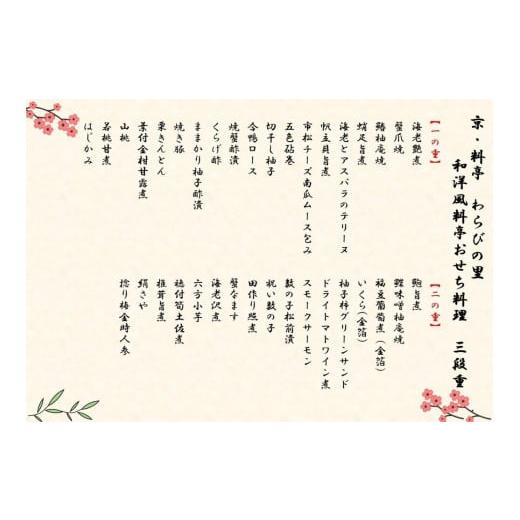 京・料亭 わらびの里
和洋風料亭おせち料理 三段重
【一の重】
海老艶煮
蟹爪焼
鰆柚庵焼
蛸足旨煮
海老とアスパラのテリーヌ
帆立貝旨煮
市松チーズ南瓜ムース包み
五色砧巻
切干し柚子
合鴨ロース
焼蟹酢漬
くらげ酢
ままかり柚子酢漬
焼き豚
栗きんとん
葉付金柑甘露煮
山桃
若桃甘煮
はじかみ
【二の重】
鮑旨煮
鰹味噌柚庵焼
福豆葡萄煮（金箔）
いくら（金箔）
柚子柿グリーンサンド
ドライトマトワイン煮
スモークサーモン
数の子松前漬
祝い数の子
田作り照煮
蟹なます
海老沢煮
六方小芋
穂付筍土佐煮
椎茸旨煮
絹さや
捻り梅金時人参